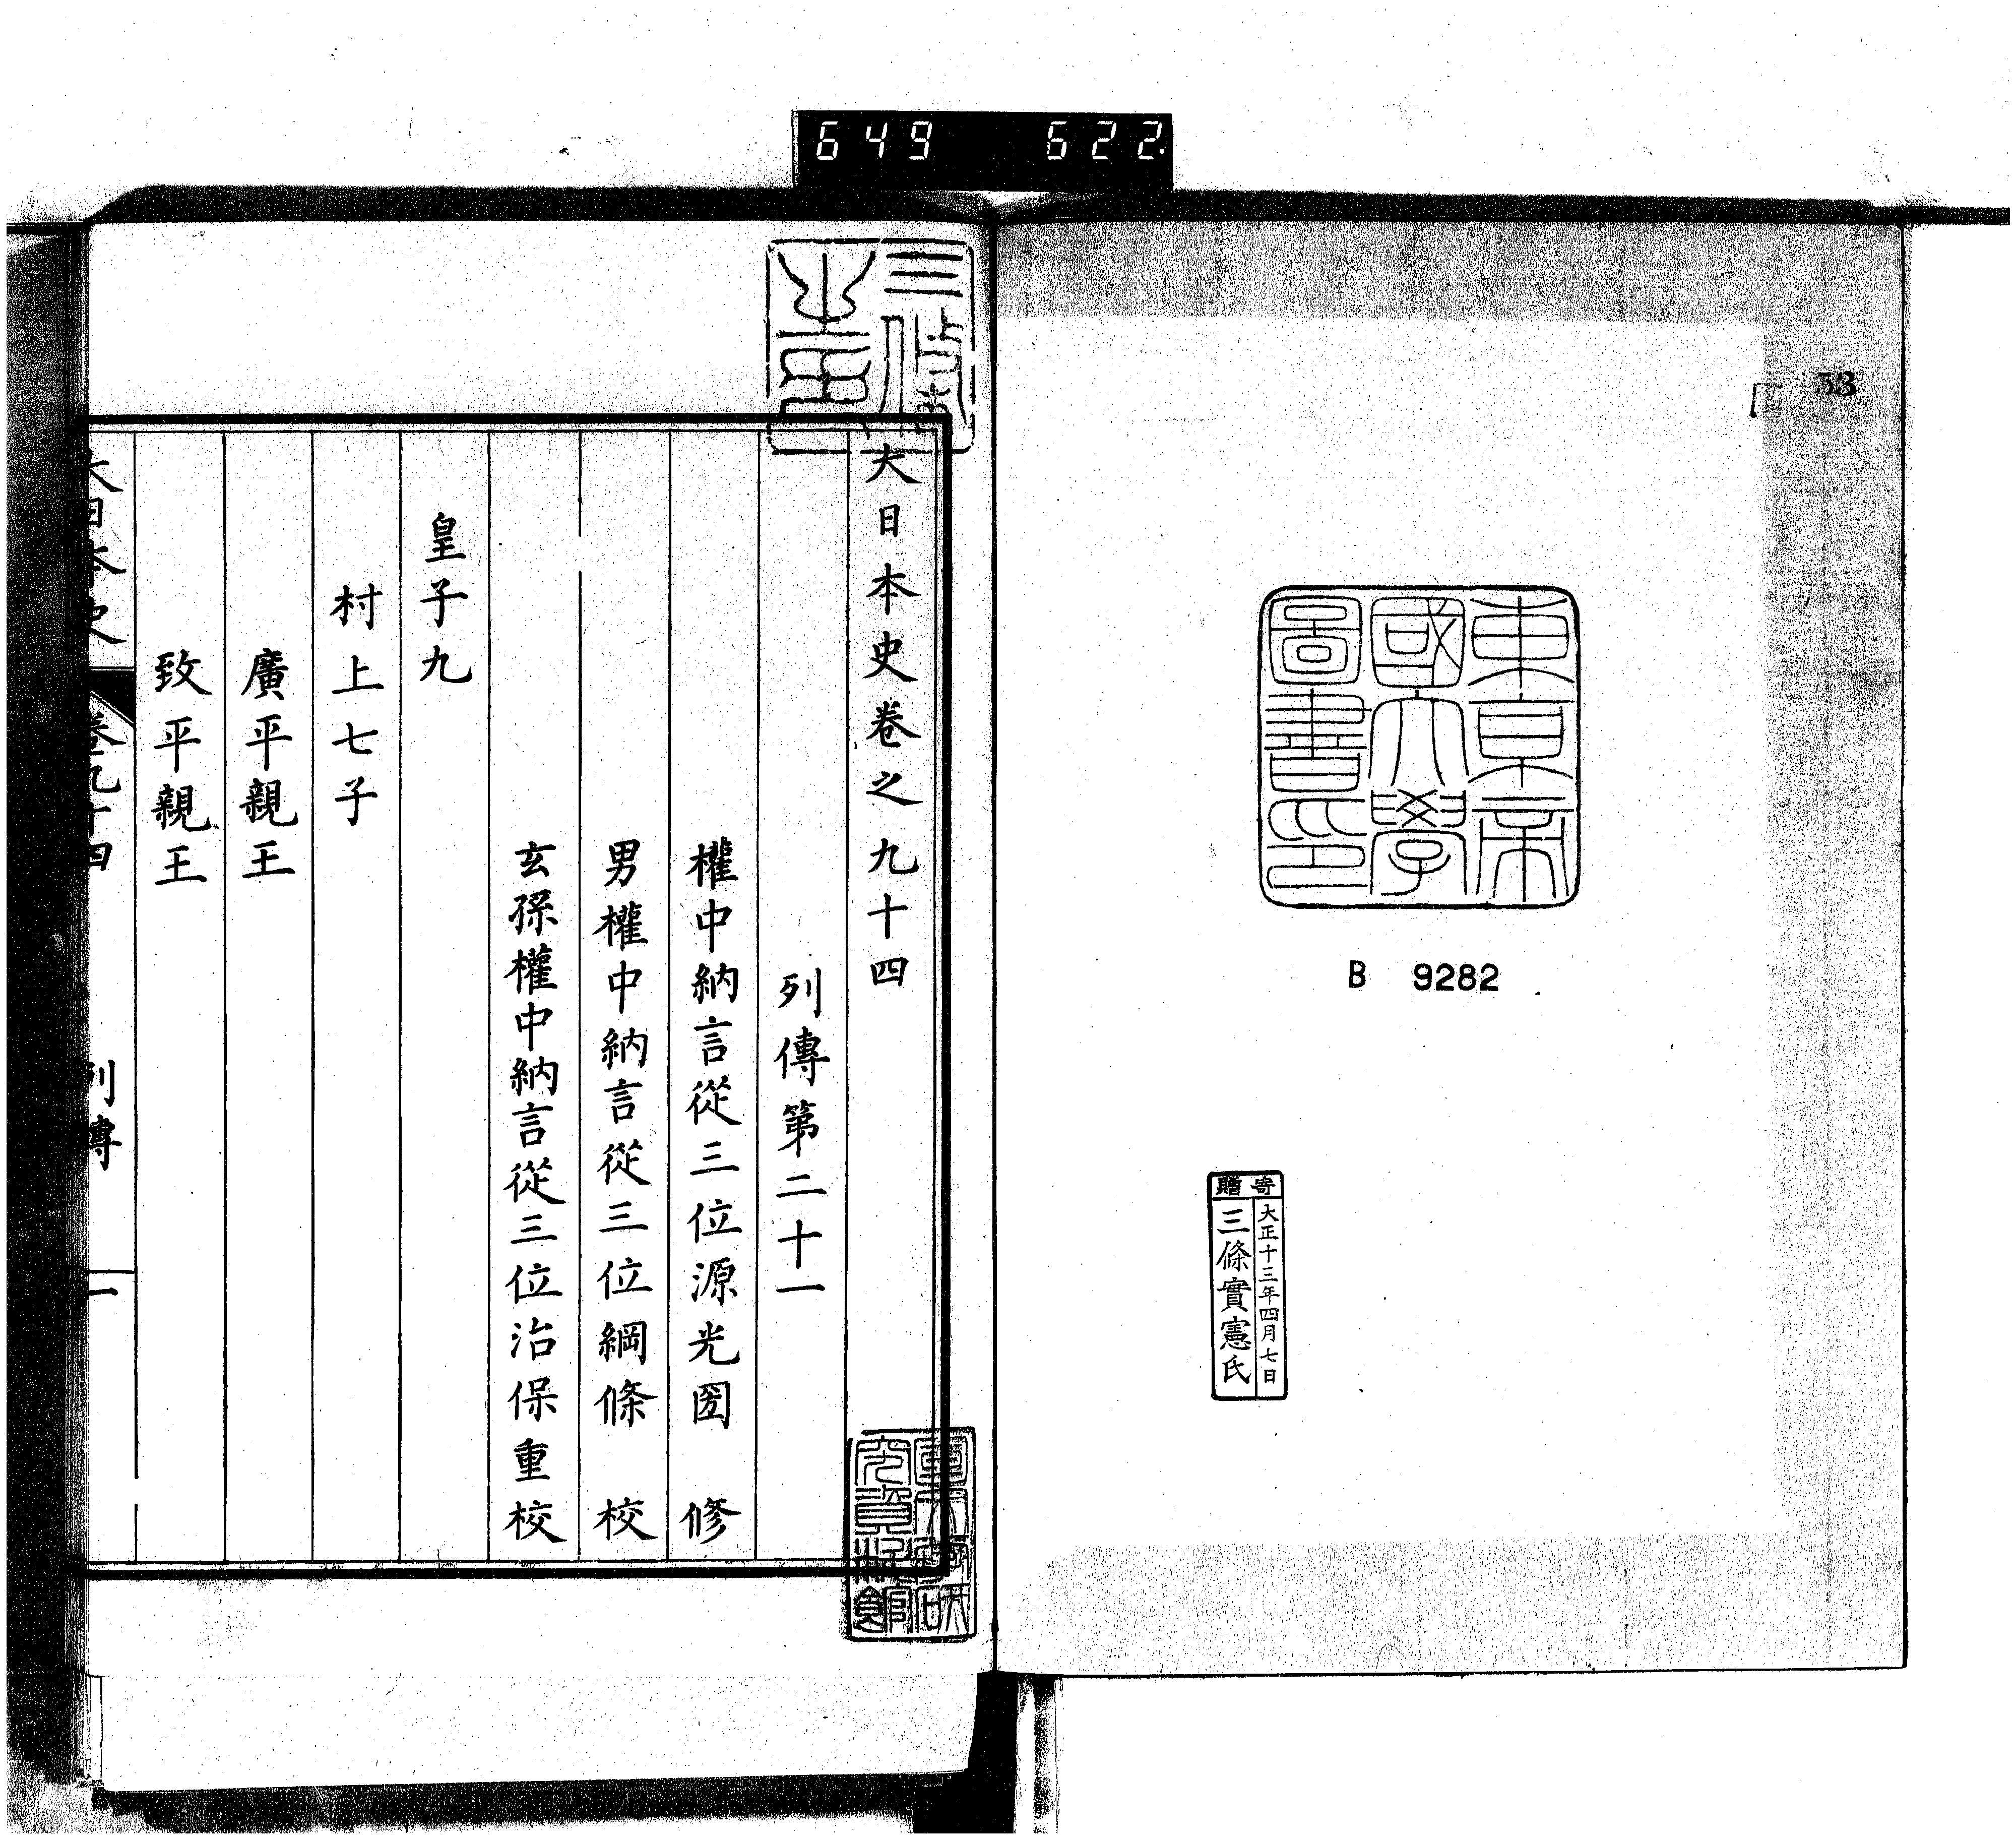 649 622.
53
東京帝
國大學
圖書印
B 9282
寄贈
大正十三年四月七日
三條實憲氏
大日本史卷之九十四
列傳第二十一
權中納言從三位源光圀 修
男權中納言從三位綱條 校
玄孫權中納言從三位治保重校
皇子九
村上七子
廣平親王
致平親王
大日本史 卷九十四 列傳 一